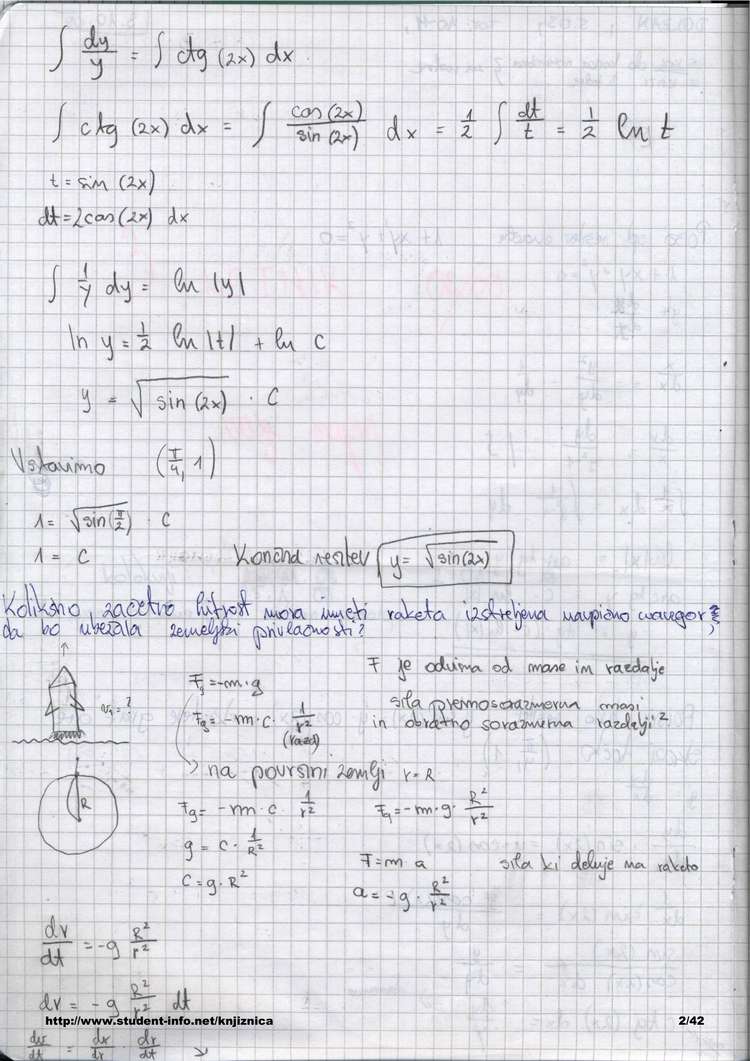 ∫ dy/y = ∫ ctg (2x) dx
∫ ctg (2x) dx = ∫ cos(2x)/sin(2x) dx = 1/2 ∫ dt/t = 1/2 ln t
t = sin (2x)
dt = 2cos(2x) dx
∫ 1/y dy = ln |y|
ln y = 1/2 ln |t| + ln c
y = √sin(2x) · C
Vstavimo (π/4, 1)
1 = √sin(π/2) · C
1 = C
Končna rešitev y = √sin(2x)
Kolikšno začetno hitrost mora imeti raketa izstreljena navpično navzgor
da bo ubežala zemeljski privlačnosti?
F je odvisna od mase in razdalje
Fg = -m·g
v₁ = ?
sila premosorazmerna masi
Fg = -m·c· 1/r²
in obratno sorazmerna razdalji²
(razd)
na površini zemlji r = R
R
Fg = -m·c 1/r²
Fg = -m·g· R²/r²
g = c· 1/R²
F = m a
sila ki deluje na raketo
C = g·R²
a = -g· R²/r²
dv/dt = -g R²/r²
dv = -g R²/r² dt
http://www.student-info.net/knjiznica
2/42